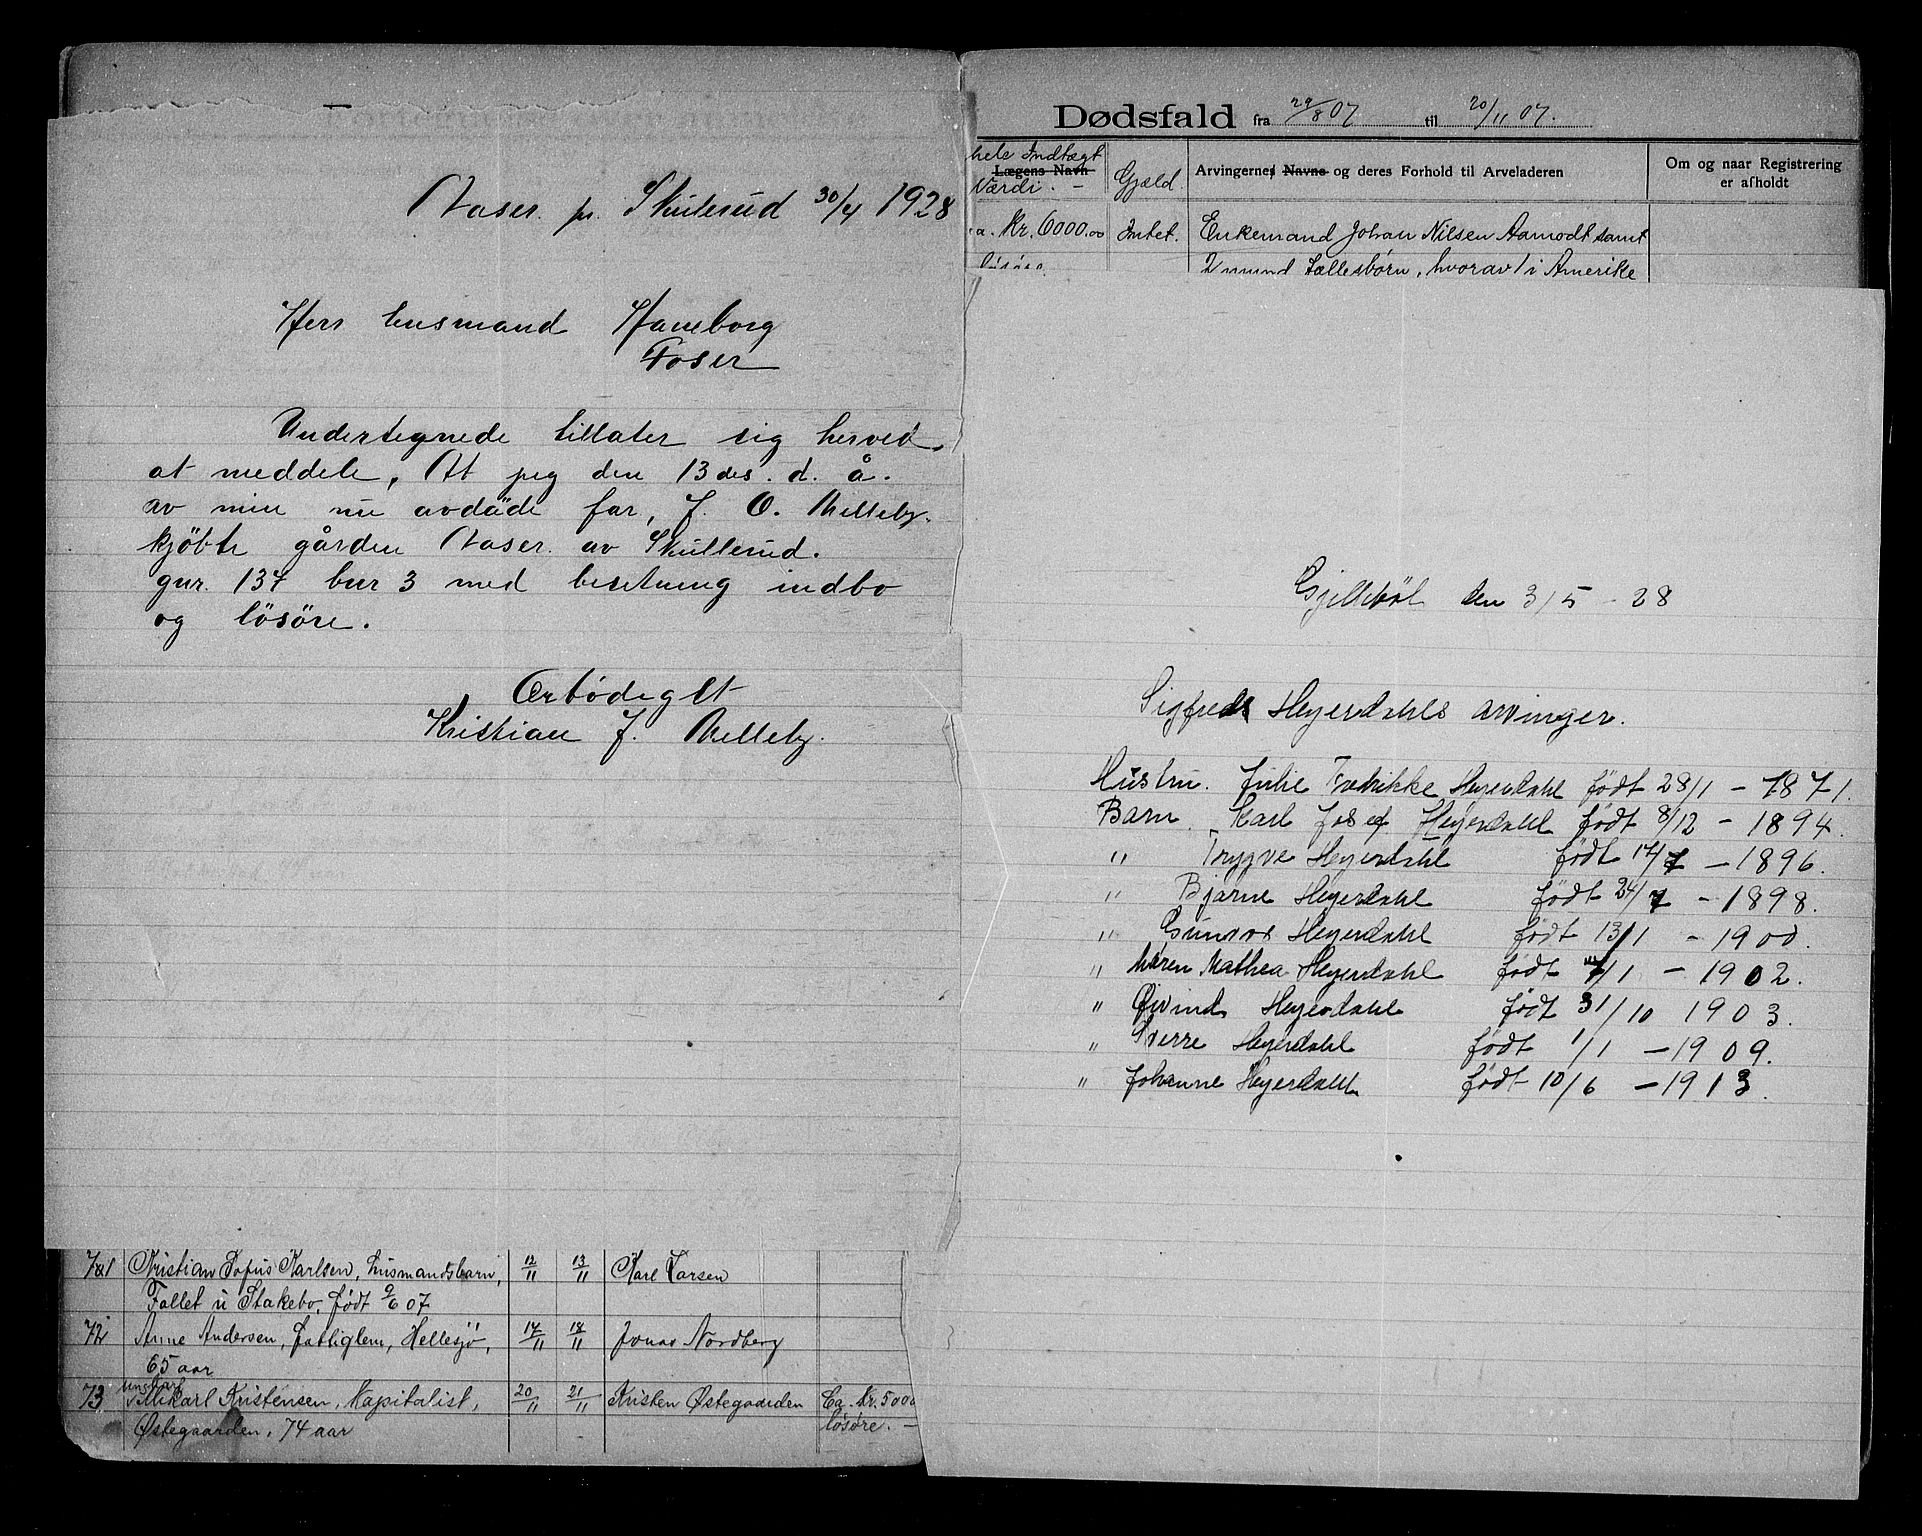 Naser. pr. Skulerud 30/4 1928
Herr lensmand Haneborg
Foser
Undertegnede tillater sig herved.
at meddele, At jeg den 13 des. d. å.
av min nu avdöde far, J. O. Melleby.
kjöbte gården Naser. av Skullerud.
gnr. 137 bnr 3 med besetning indbo
og lösöre.
Ærbödiglt
Kristian J. Melleby.
71 Kristian Sofus Karlsen, husmandsbarn, 12/11 13/11 Karl Larsen
Fallet u Stakebo, født 9/6 07
72 Anne Andersen, fattiglem, Hellesjö, 17/11 18/11 Jonas Nordberg
65 aar
73 Mikarl Kristensen, Kapitalist, 20/11 21/11 Kristen Østegaarden Ca. Kr. 5000
Østegaarden, 74 aar løsøre. —
Dødsfald fra 29/8 07 til 20/11 07.
hele Indtægt
Lægens Navn
Værdi. — Gjæld. Arvingernes Navne og deres Forhold til Arveladeren Om og naar Registrering
er afholdt
Kr. 6000.00 Intet. Enkemand Johan Nilsen Aamodt samt
løsøre. 2 mynd. Fællesbørn, hvorav 1 i Amerika
Gjellebøl den 3/5 - 28
Sigfreds Heyerdahls arvinger.
Hustru. Julie Fredrikke Heyerdahl født 28/1 - 1871.
Barn Karl Josef Heyerdahl født 8/12 - 1894.
" Trygve Heyerdahl født 17/7 - 1896.
" Bjarne Heyerdahl født 24/7 - 1898.
" Gunvor Heyerdahl født 13/1 - 1900.
" Maren Mathea Heyerdahl født /1 - 1902.
" Øivind Heyerdahl født 31/10 1903.
" Sverre Heyerdahl født 1/1 - 1909.
" Johanne Heyerdahl født 10/6 - 1913.